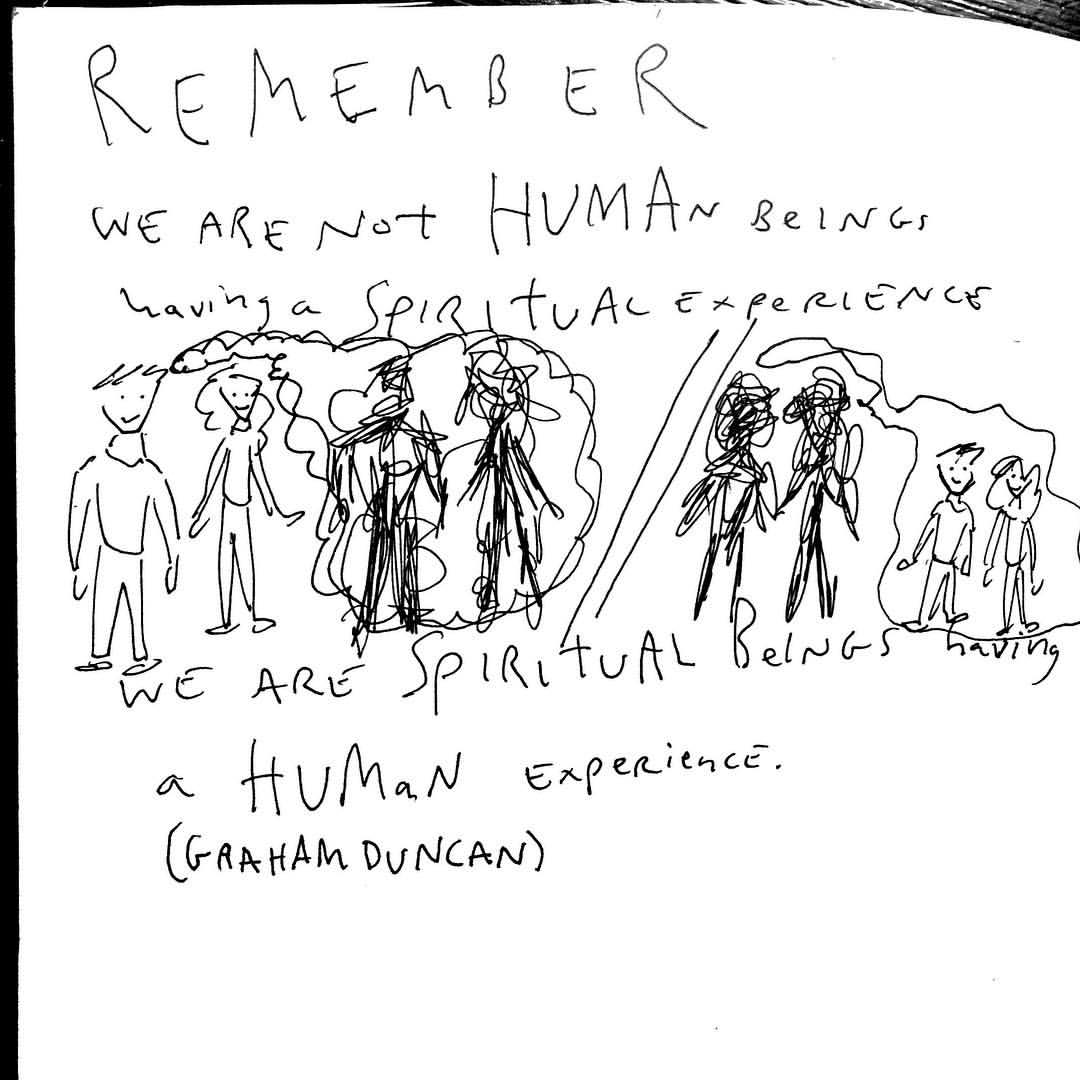 REMEMBER
WE ARE NOt HUMAN BeINGs
having a SPIRItUAL ExpeRIENCE
WE ARE SpIRItUAL BeINGS having
a HUMaN ExpeRiencE.
(GRAHAM DUNCAN)